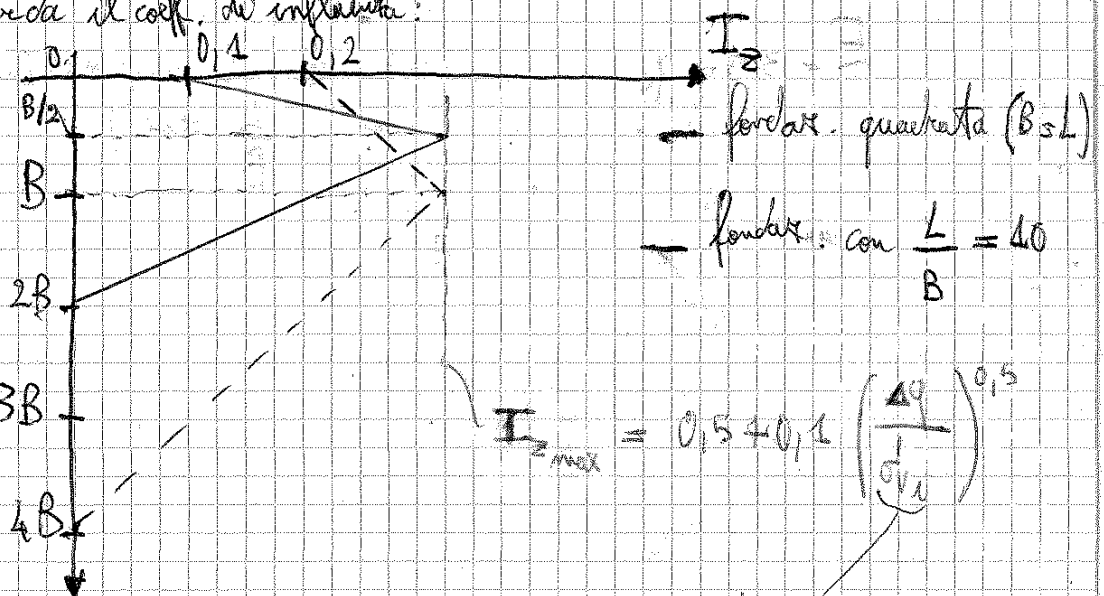 il coeff. di influenza:
0 0,1 0,2 I_z
B/2
fondaz. quadrata (B=L)
B
fondaz. con L/B = 10
2B
3B
I_z max = 0,5 + 0,1 (Δq / σ'vi)^0,5
4B